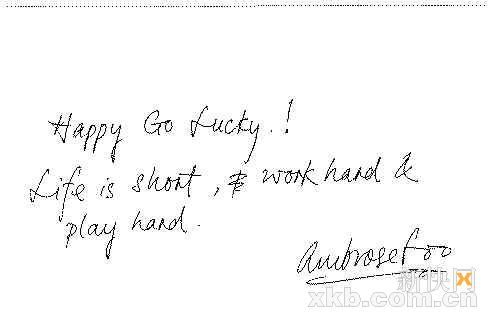 Happy Go Lucky.!
Life is short, & work hard &
play hard.
Ambrose Foo
新快网
xkb.com.cn